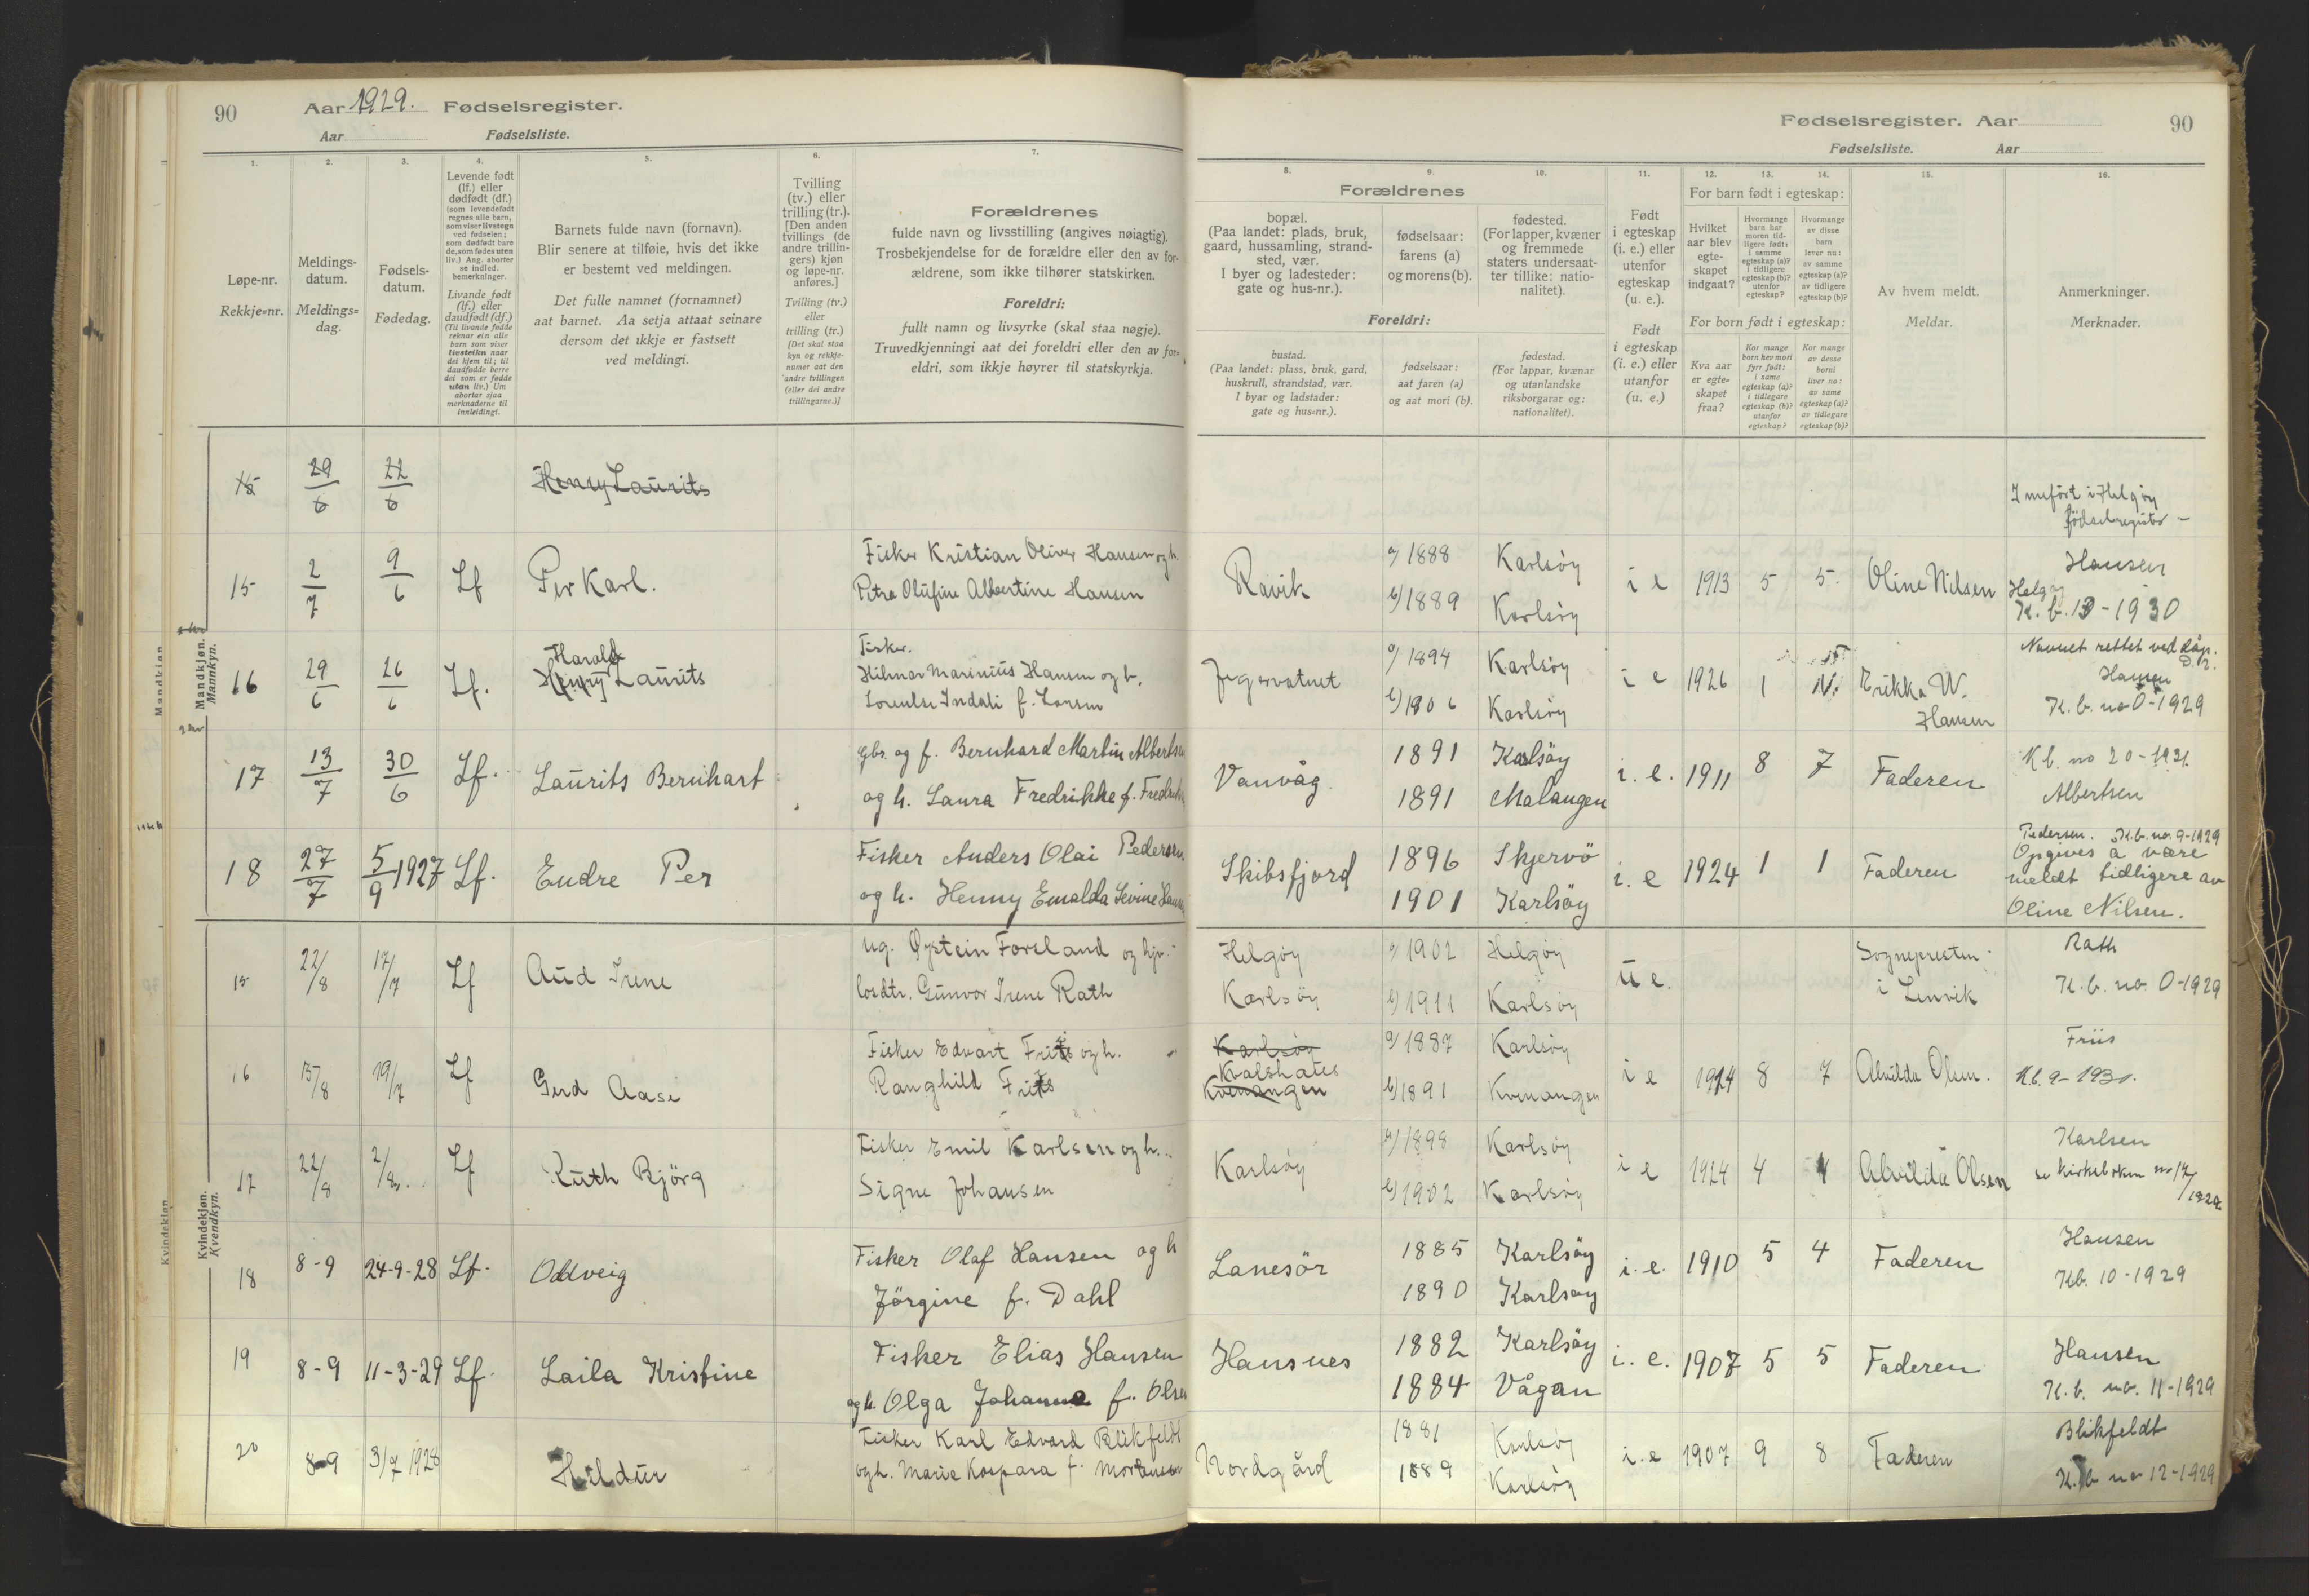 90 Aar 1929. Fødselsregister.
Aar Fødselsliste.
1.
Løpe-nr.
Rekkje=nr.
2.
Meldings-
datum.
Meldings=
dag.
3.
Fødsels-
datum.
Fødedag.
4.
Levende født
(lf.) eller
dødfødt (df.)
(som levendefødt
regnes alle barn,
som viser livstegn
ved fødselen;
som dødfødt bare
de, som fødes uten
liv.) Ang. aborter
se indled.
bemerkninger.
Livande født
(lf.) eller
daudfødt (df.)
(Til livande fødde
reknar ein alle
barn som viser
livsteikn naar
dei kjem til; til
daudfødde berre
dei som er fødde
utan liv.) Um
abortar sjaa
merknaderne til
innleidingi.
5.
Barnets fulde navn (fornavn).
Blir senere at tilføie, hvis det ikke
er bestemt ved meldingen.
Det fulle namnet (fornamnet)
aat barnet. Aa setja attaat seinare
dersom det ikkje er fastsett
ved meldingi.
6.
Tvilling
(tv.) eller
trilling (tr.).
[Den anden
tvillings (de
andre trillin-
gers) kjøn
og løpe-nr.
anføres.]
Tvilling (tv.)
eller
trilling (tr.)
[Det skal staa
kyn og rekkje-
numer aat den
andre tvillingen
(eller dei andre
trillingarne.)]
7.
Forældrenes
fulde navn og livsstilling (angives nøiagtig).
Trosbekjendelse for de forældre eller den av for-
ældrene, som ikke tilhører statskirken.
Foreldri:
fullt namn og livsyrke (skal staa nøgje).
Truvedkjenningi aat dei foreldri eller den av for=
eldri, som ikkje høyrer til statskyrkja.
Fødselsregister. Aar 90
Fødselsliste. Aar
8.
9.
10.
Forældrenes
bopæl.
(Paa landet: plads, bruk,
gaard, hussamling, strand-
sted, vær.
I byer og ladesteder:
gate og hus-nr.).
fødselsaar:
farens (a)
og morens (b).
fødested.
(For lapper, kvæner
og fremmede
staters undersaat-
ter tillike: natio-
nalitet).
Foreldri:
bustad.
(Paa landet: plass, bruk, gard,
huskrull, strandstad, vær.
I byar og ladstader:
gate og hus=nr.).
fødselsaar:
aat faren (a)
og aat mori (b).
fødestad.
(For lappar, kvænar
og utanlandske
riksborgarar og:
nationalitet).
11.
Født
i egteskap
(i. e.) eller
utenfor
egteskap
(u. e.).
Født
i egteskap
(i. e.) eller
utanfor
(u. e.)
12.
13.
14.
For barn født i egteskap:
Hvilket
aar blev
egte-
skapet
indgaat?
Hvormange
barn har
moren tid-
ligere født:
i samme
egteskap (a)?
i tidligere
egteskap (b)?
utenfor
egteskap?
Hvormange
av disse
barn
lever nu:
av samme
egteskap (a)?
av tidligere
egteskap (b)?
For born født i egteskap:
Kva aar
er egte=
skapet
fraa?
Kor mange
born hev mori
fyrr født:
i same
egteskap (a)?
i tidlegare
egteskap (b)?
utanfor
egteskap?
Kor mange
av desse
borni
liver no:
av same
egteskap (a)?
av tidlegare
egteskap (b)?
15.
Av hvem meldt.
Meldar.
16.
Anmerkninger.
Merknader.
Mandkjøn.
Mannkyn.
15 29/6 22/6 Henry Laurits Inneført i Helgøy
fødselsregister –
15 2/7 9/6 Lf Per Karl. Fisker Kristian Oliver Hansen og h.
Petra Olufine Albertine Hansen
Ravik a) 1888 Karlsöy
b) 1889 Karlsöy
i e 1913 5 5. Oline Nilsen Hansen
Helgøy
K. b. 13 - 1930
16 29/6 26/6 Lf. Harald
Henry Laurits Fisker.
Hilmar Marinius Hansen og h.
Indali f. Larsen
Jegervatnet a) 1894 Karlsöy
b) 1906 Karlsöy
i e 1926 1 Erikka W.
Hansen
Navnet rettet ved dåp.
Hansen
K. b. no 0-1929
17 13/7 30/6 Lf. Laurits Bernhart Gbr. og f. Bernhard Martin Albertsen
og h. Laura Fredrikke f.
Vanvåg 1891 Karlsöy
1891 Malangen
i. e. 1911 8 7 Faderen Kb. no 20-1931.
Albertsen
18 27/7 5/9 1927 Lf. Endre Per Fisker Anders Olai Pedersen
og h. Henny Emalda Sevine
Skibsfjord 1896 Skjervö
1901 Karlsöy
i. e 1924 1 1 Faderen Pedersen. K.b. no. 9-1929
Opgives å være
meldt tidligere av
Oline Nilsen.
Kvindekjøn.
Kvendkyn.
15 22/8 17/7 Lf Aud Irene ug. Øystein Forsland og
Gunvor Irene Rath
Helgöy a) 1902 Helgöy
Karlsöy b) 1911 Karlsöy
u e. Sognepresten
i Lenvik Rath
K. b. no. 0-1929
16 15/8 19/7 Lf Gerd Aase Fisker Edvart Friis og h.
Ranghild Friis
Karlsöy
Kvenangen
a) 1887 Karlsöy
b) 1891 Kvenangen
i e 1914 8 7 Alvilda Olsen. Friis
Kb. 9- 1930.
17 22/8 2/8. Lf Ruth Bjørg Fisker Emil Karlsen og h.
Signe Johansen
Karlsöy a) 1898 Karlsöy
b) 1902 Karlsöy
i e 1924 4 4 Alvilda Olsen Karlsen
se kirkeboken no 17/
18 8-9 24-9-28 Lf. Oddveig Fisker Olaf Hansen og h
Jörgine f. Dahl
Lanesör 1885 Karlsöy
1890 Karlsöy
i. e. 1910 5 4 Faderen Hansen
Kb. 10-1929
19 8-9 11-3-29 Lf. Laila Kristine Fisker Elias Hansen
og h. Olga Johanna f. Olsen
Hansnes 1882 Karlsöy
1884 Vågan
i. e. 1907 5 5 Faderen Hansen
K. b. no. 11-1929
20 8-9 3/7 1928 Hildur Fisker Karl Edvard Blikfeldt
og h. Marie Kaspara f. Mortensen
Nordgård 1881 Karlsöy
1889 Karlsöy
i. e 1907 9 8 Faderen Blikfeldt
K. b no 12-1929